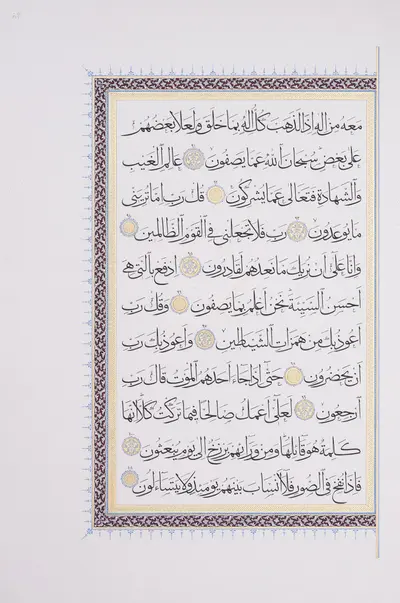 معه من اله اذا لذهب كل اله بما خلق ولعلا بعضهم
على بعض سبحان الله عما يصفون عالم الغيب
والشهادة فتعالى عما يشركون قل رب اما تريني
ما يوعدون رب فلا تجعلني في القوم الظالمين
وانا على ان نريك ما نعدهم لقادرون ادفع بالتي هي
احسن السيئة نحن اعلم بما يصفون وقل رب
اعوذ بك من همزات الشياطين واعوذ بك رب
ان يحضرون حتى اذا جاء احدهم الموت قال رب
ارجعون لعلي اعمل صالحا فيما تركت كلا انها
كلمة هو قائلها ومن ورائهم برزخ الى يوم يبعثون
فاذا نفخ في الصور فلا انساب بينهم يومئذ ولا يتساءلون